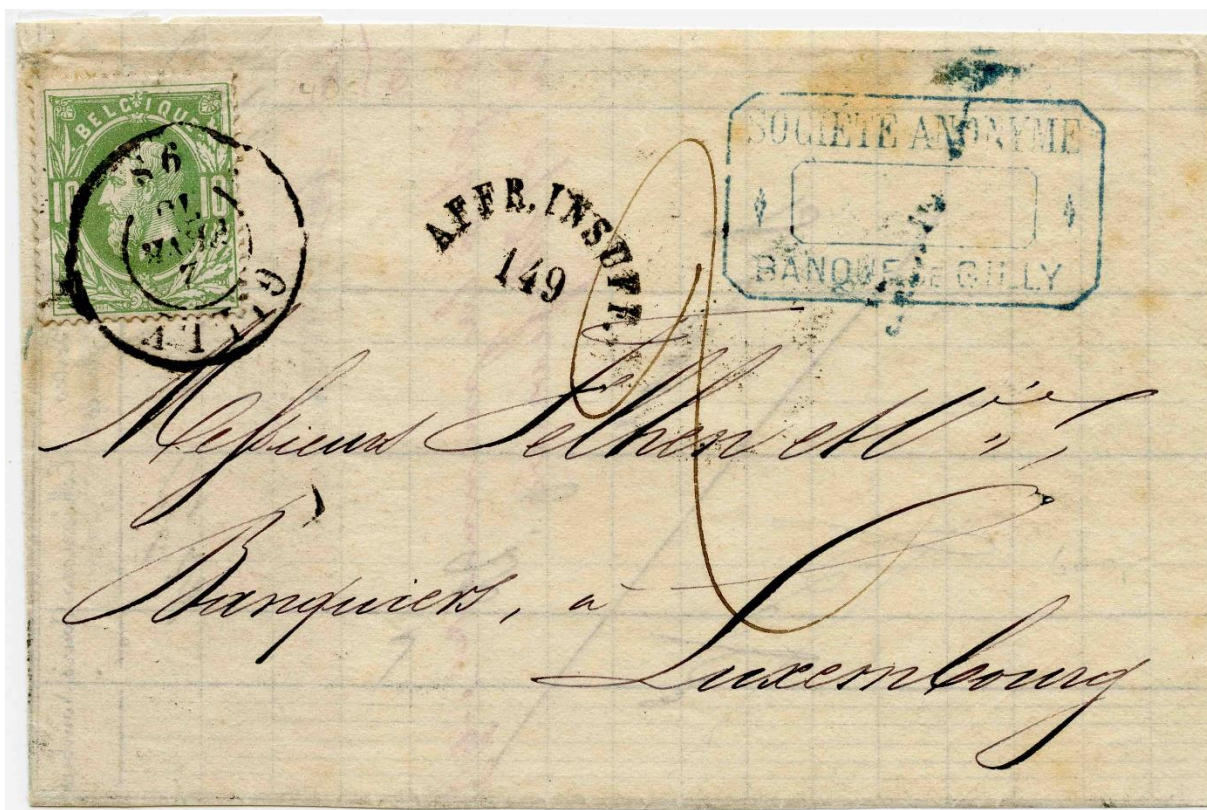 BELGIQUE
10 10
GILLY
MARS
7
AFFR. INSUFF.
149
SOCIETE ANONYME
BANQUE DE GILLY
2
Messieurs
Banquiers, à
Luxembourg